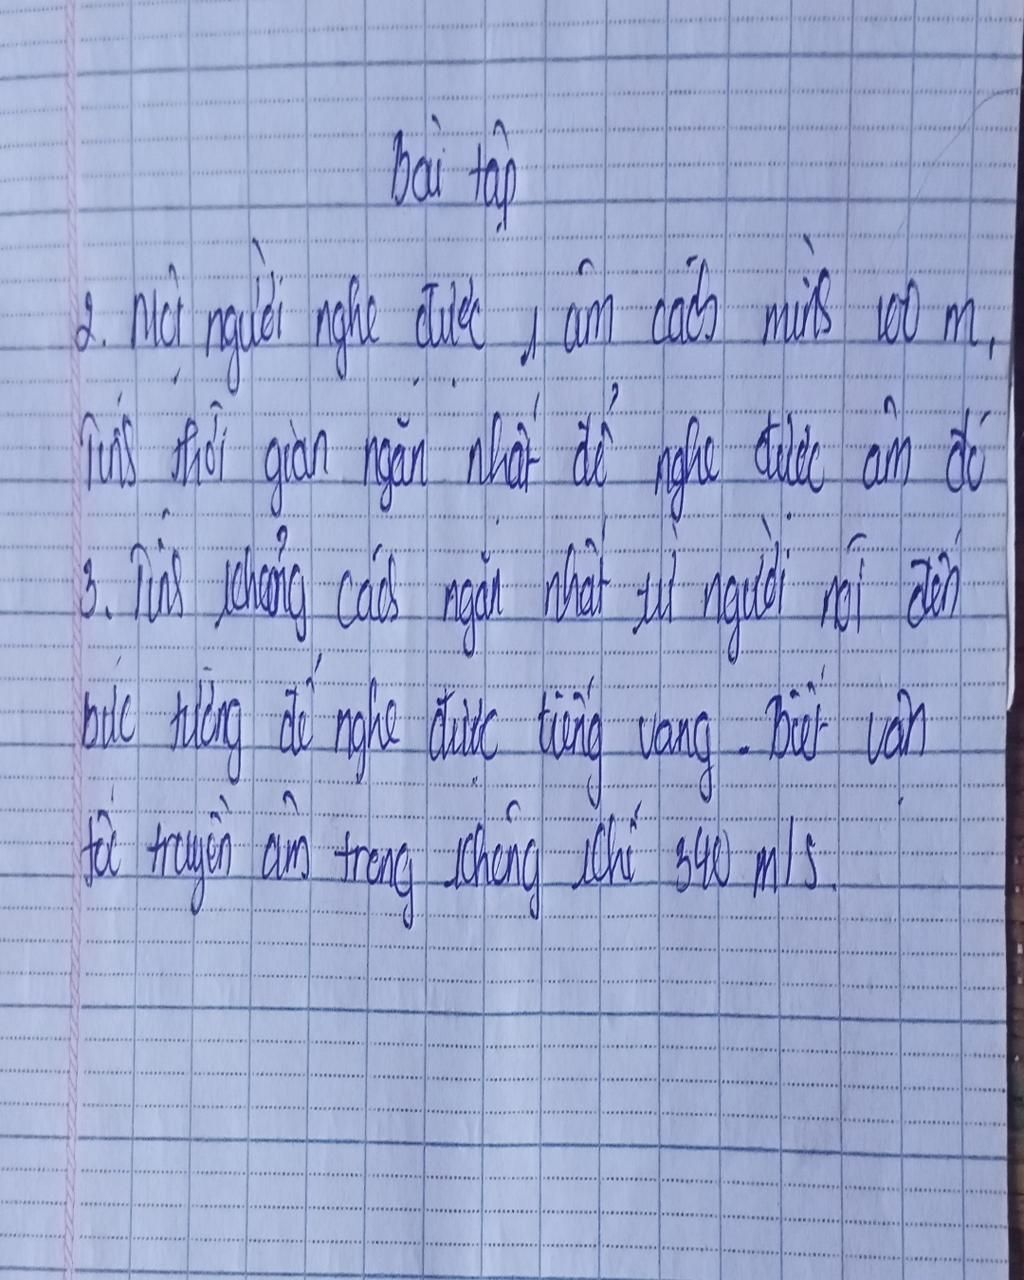 Bài tập
2. Một người nghe được 1 âm cách mình 100 m.
Tính thời gian ngắn nhất để nghe được âm đó
3. Tính khoảng cách ngắn nhất từ người nói đến
bức tường để nghe được tiếng vang. Biết vận
tốc truyền âm trong không khí 340 m/s.